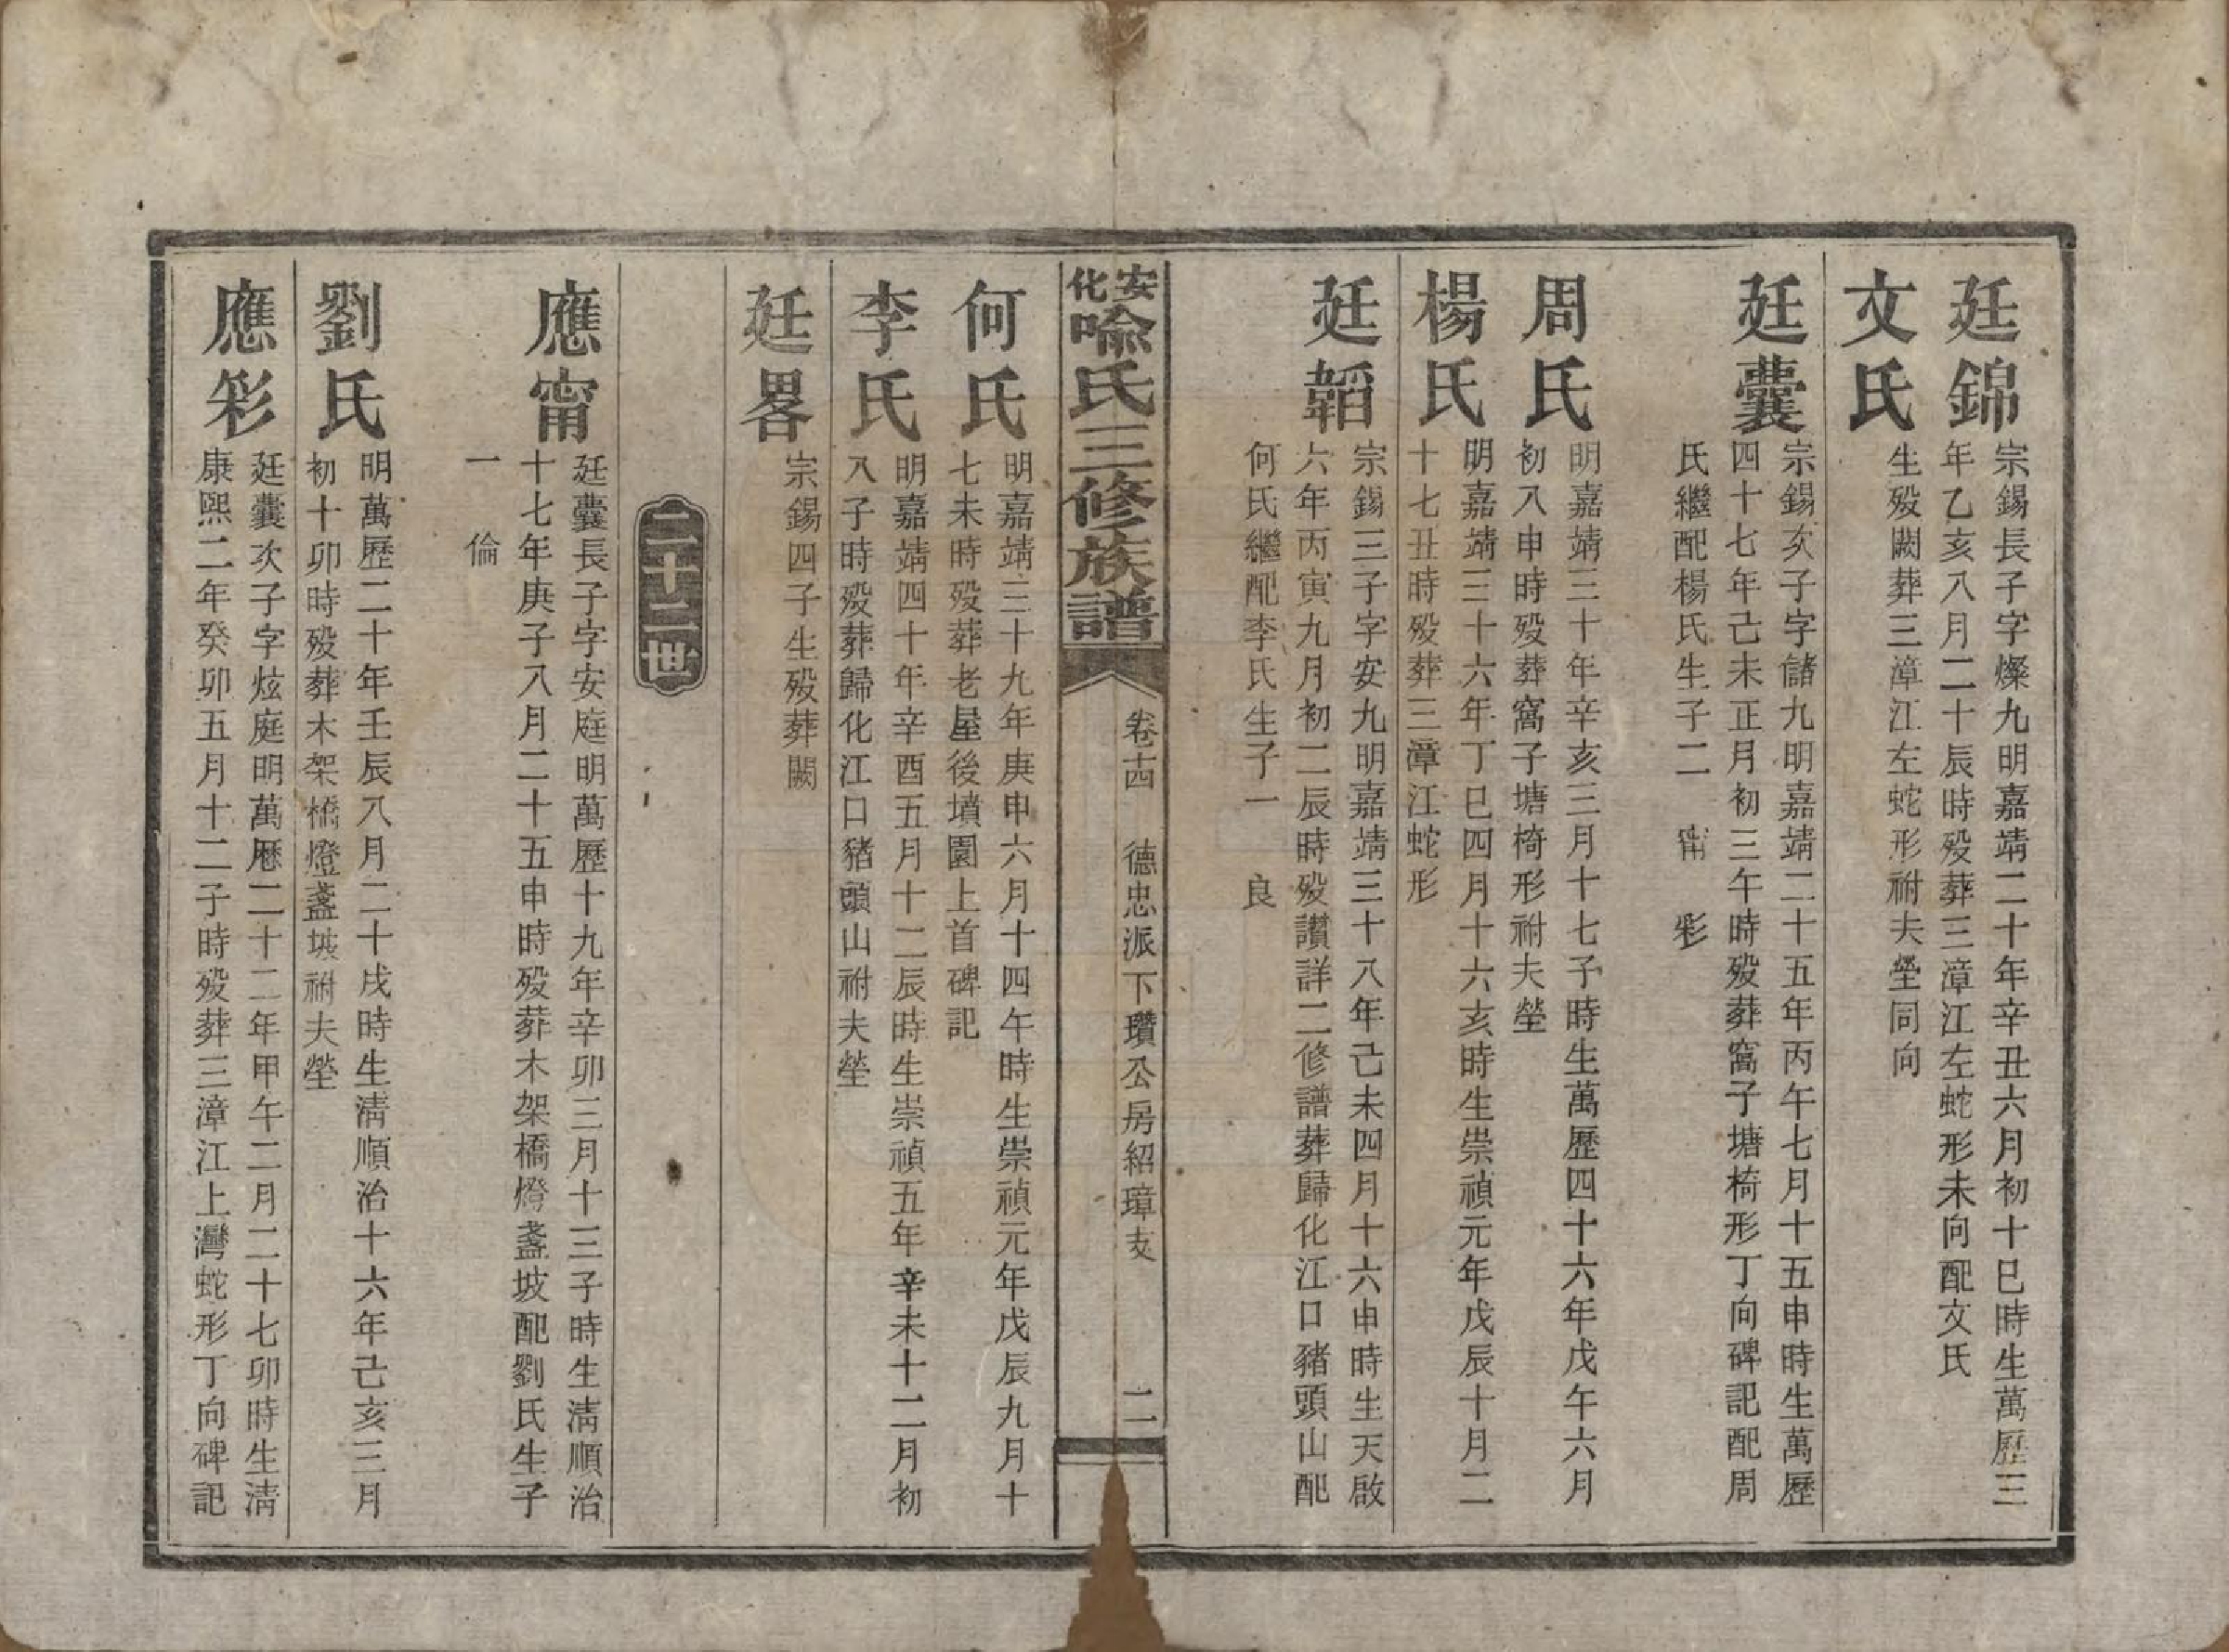 廷錦
宗錫長子字燦九明嘉靖二十年辛丑六月初十巳時生萬歷三
年乙亥八月二十辰時殁葬三漳江左蛇形未向配文氏
文氏
生殁闕葬三漳江左蛇形祔夫塋同向
廷囊
宗錫次子字儲九明嘉靖二十五年丙午七月十五申時生萬歷
四十七年己未正月初三午時殁葬窩子塘椅形丁向碑記配周
氏繼配楊氏生子二 甯 彩
周氏
明嘉靖三十年辛亥三月十七子時生萬歷四十六年戊午六月
初八申時殁葬窩子塘椅形祔夫塋
楊氏
明嘉靖三十六年丁巳四月十六亥時生崇禎元年戊辰十月二
十七丑時殁葬三漳江蛇形
廷韜
宗錫三子字安九明嘉靖三十八年己未四月十六申時生天啟
六年丙寅九月初二辰時殁讃詳二修譜葬歸化江口豬頭山配
何氏繼配李氏生子一 良
安化喩氏三修族譜
卷十四 德忠派下瓚公房紹璋支
二
何氏
明嘉靖三十九年庚申六月十四午時生崇禎元年戊辰九月十
七未時殁葬老屋後墳園上首碑記
李氏
明嘉靖四十年辛酉五月十二辰時生崇禎五年辛未十二月初
八子時殁葬歸化江口豬頭山祔夫塋
廷畧
宗錫四子生殁葬闕
二十二世
應甯
廷囊長子字安庭明萬歷十九年辛卯三月十三子時生清順治
十七年庚子八月二十五申時殁葬木架橋燈盞坡配劉氏生子
一 倫
劉氏
明萬歷二十年壬辰八月二十戌時生清順治十六年己亥三月
初十卯時殁葬木架橋燈盞坡祔夫塋
應彩
廷囊次子字炫庭明萬歷二十二年甲午二月二十七卯時生清
康熙二年癸卯五月十二子時殁葬三漳江上灣蛇形丁向碑記